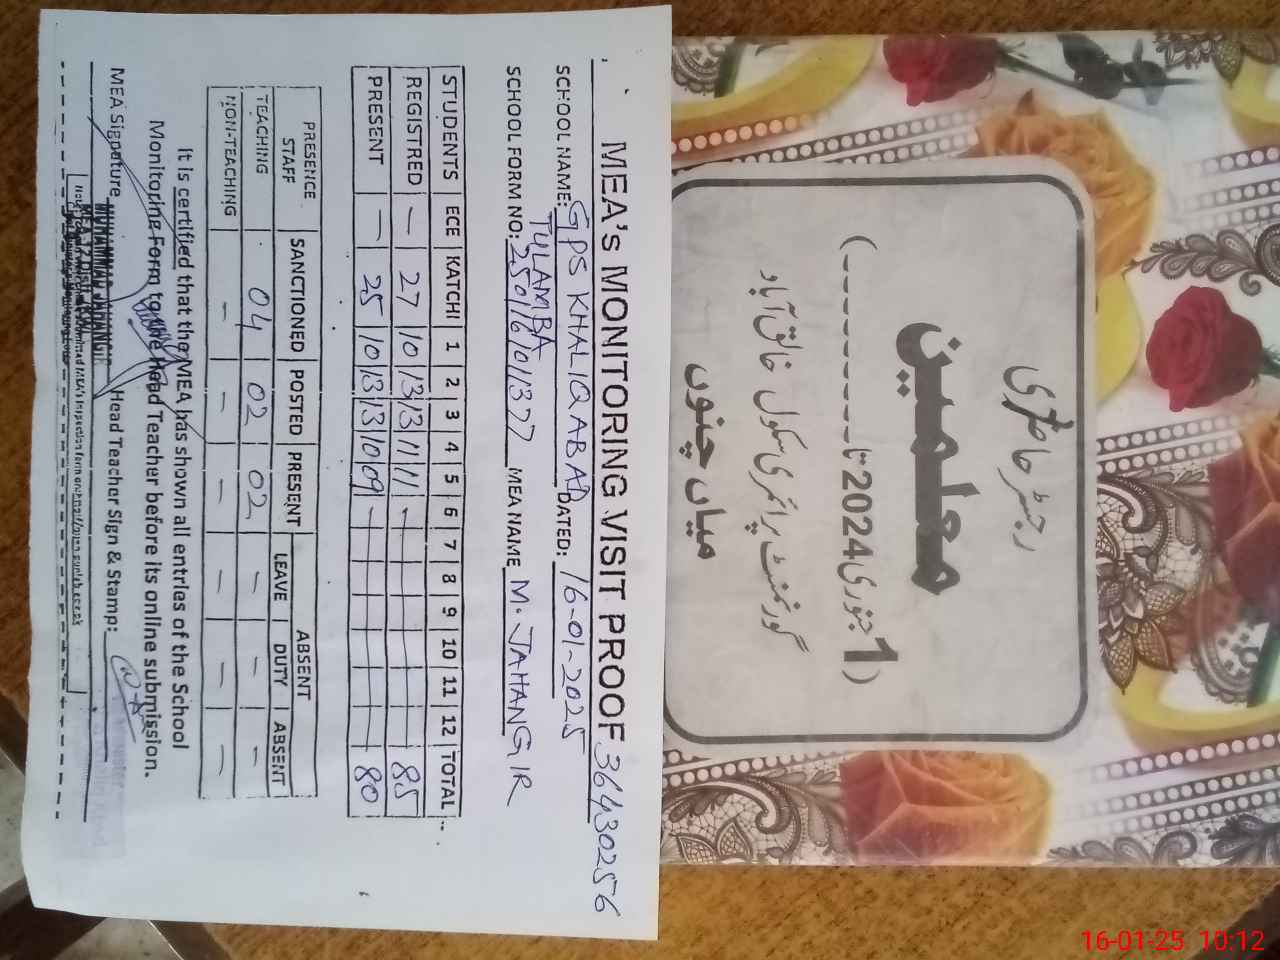 MEA's MONITORING VISIT PROOF 36430256
SCHOOL NAME: GPS KHALIQABAD DATED: 16-01-2025
TULAMBA
SCHOOL FORM NO: MEA NAME M. JAHANGIR
STUDENTS ECE KATCHI 1 2 3 4 5 6 7 8 9 10 11 12 TOTAL
REGISTRED — 27 10 13 13 11 11 - 85
PRESENT — 25 10 13 13 10 09 - 80
PRESENCE STAFF SANCTIONED POSTED PRESENT ABSENT
LEAVE DUTY ABSENT
TEACHING 04 02 02 — — —
NON-TEACHING — — — — — —
It is certified that the MEA has shown all entries of the School
Monitoring Form to the Head Teacher before its online submission.
MEA Signature Head Teacher Sign & Stamp:
MUHAMMAD JAHANGIR
رجسٹر حاضری
معلمین
(1 جنوری 2024 تا --------)
گورنمنٹ پرائمری سکول خالق آباد
میاں چنوں
16-01-25 10:12